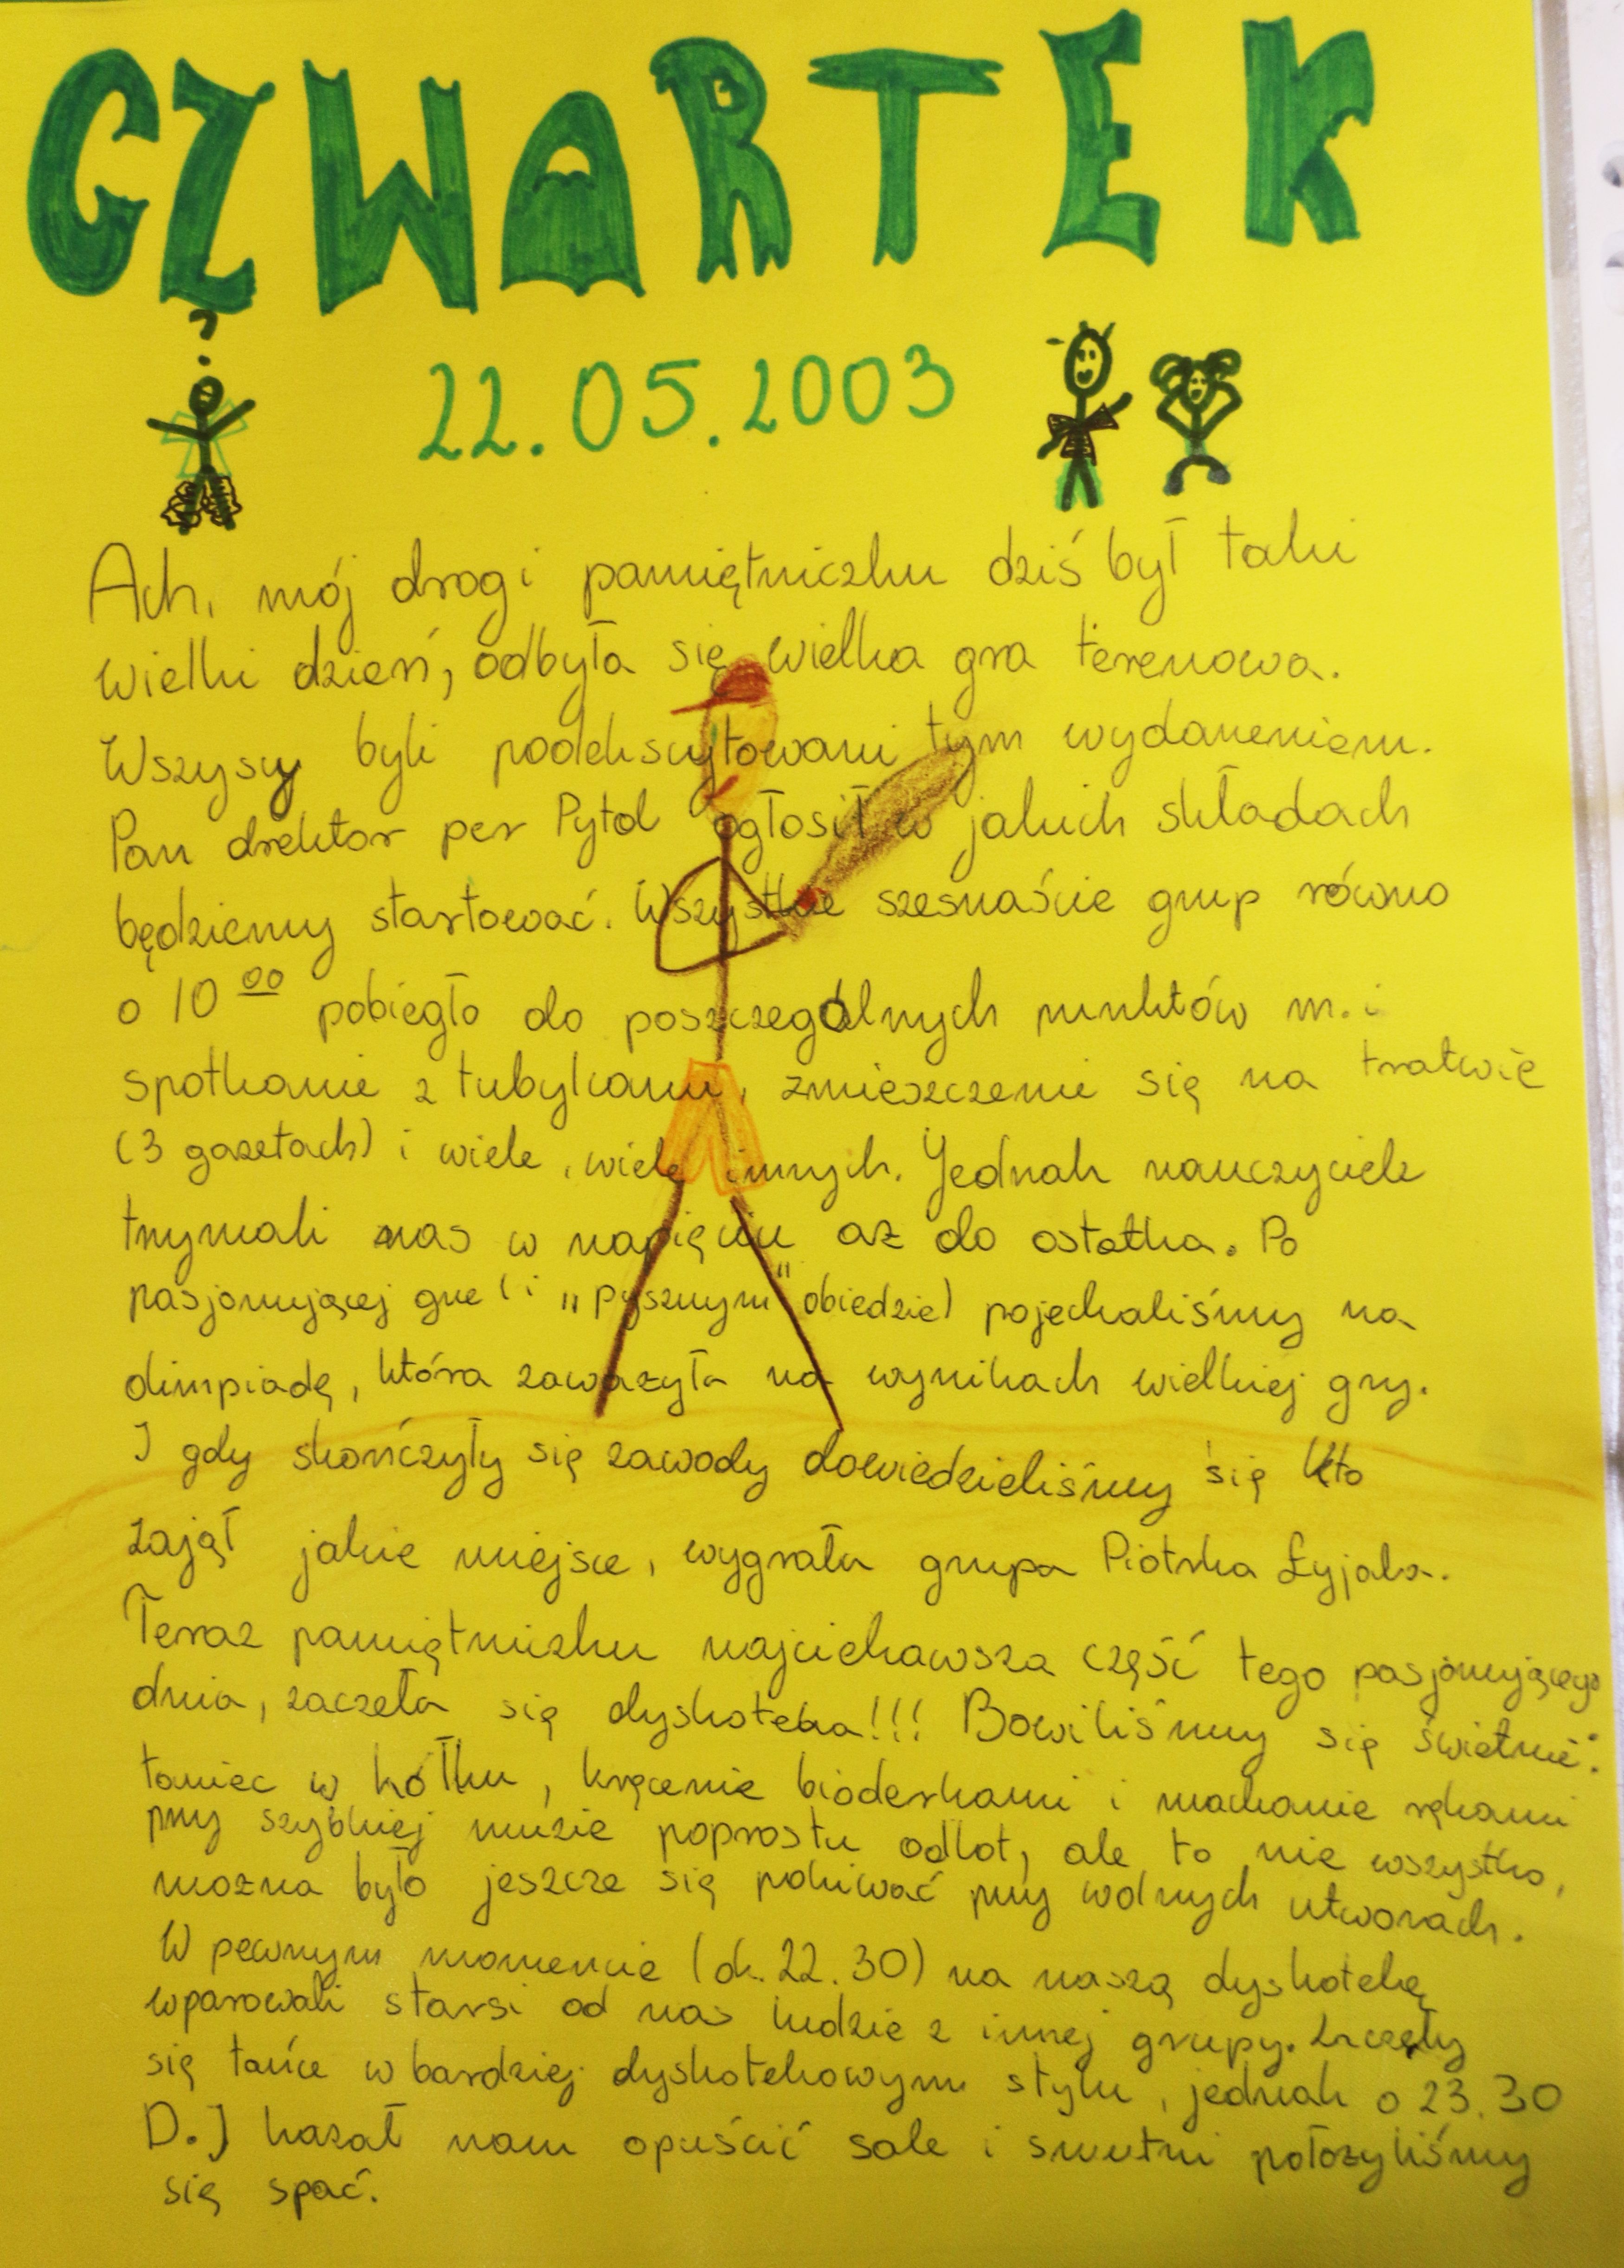 CZWARTEK
22.05.2003
Ach, mój drogi pamiętniczku dziś był taki
wielki dzień, odbyła się wielka gra terenowa.
Wszyscy byli podekscytowani tym wydarzeniem.
Pan drektor per Pytol ogłosił w jakich składach
będziemy startować. Wszystkie szesnaście grup równo
o 10 00 pobiegło do poszczególnych punktów m.i
spotkanie z tubylcami, zmieszczenie się na tratwie
(3 gazetach) i wiele, wiele innych. Jednak nauczyciele
trzymali nas w napięciu aż do ostatka. Po
pasjonującej grze (i "pysznym" obiedzie) pojechaliśmy na
olimpiadę, która zaważyła na wynikach wielkiej gry.
I gdy skończyły się zawody dowiedzieliśmy się kto
zajął jakie miejsce, wygrała grupa Piotrka Łyjaka.
Teraz pamiętniczku najciekawsza część tego pasjonującego
dnia, zaczeła się dyskoteka!!! Bawiliśmy się świetnie:
taniec w kółku, kręcenie bioderkami i machanie rękami
przy szybkiej muzie poprostu odlot, ale to nie wszystko,
można było jeszcze się pokiwać przy wolnych utworach.
W pewnym momencie (ok. 22.30) na naszą dyskotekę
wparowali starsi od nas ludzie z innej grupy. Zaczęły
się tańce w bardziej dyskotekowym stylu, jednak o 23.30
D.J kazał nam opuścić sale i smutni położyliśmy
się spać.